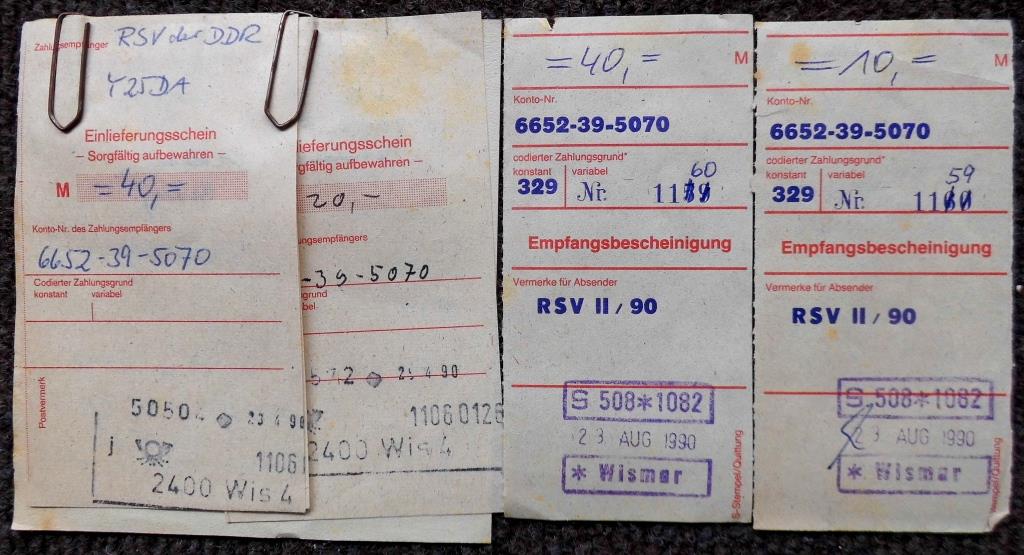 Zahlungsempfänger RSV der DDR
Y25DA
Einlieferungsschein
– Sorgfältig aufbewahren –
M =40,=
Konto-Nr. des Zahlungsempfängers
6652-39-5070
Codierter Zahlungsgrund
konstant variabel
Postvermerk
23 4 90
j 1106
2400 Wis 4
lieferungsschein
rgfältig aufbewahren –
20,-
ungsempfängers
-39-5070
grund
bel
572 23 4 90
11060126
2400 Wis 4
=40,= M
Konto-Nr.
6652-39-5070
codierter Zahlungsgrund*
konstant variabel
60
329 Nr. 11
Empfangsbescheinigung
Vermerke für Absender
RSV II / 90
S 508*1082
23. AUG 1990
* Wismar
S-Stempel/Quittung
=10,= M
Konto-Nr.
6652-39-5070
codierter Zahlungsgrund*
konstant variabel
59
329 Nr. 11
Empfangsbescheinigung
Vermerke für Absender
RSV II / 90
S 508*1082
23. AUG 1990
* Wismar
empel/Quittung